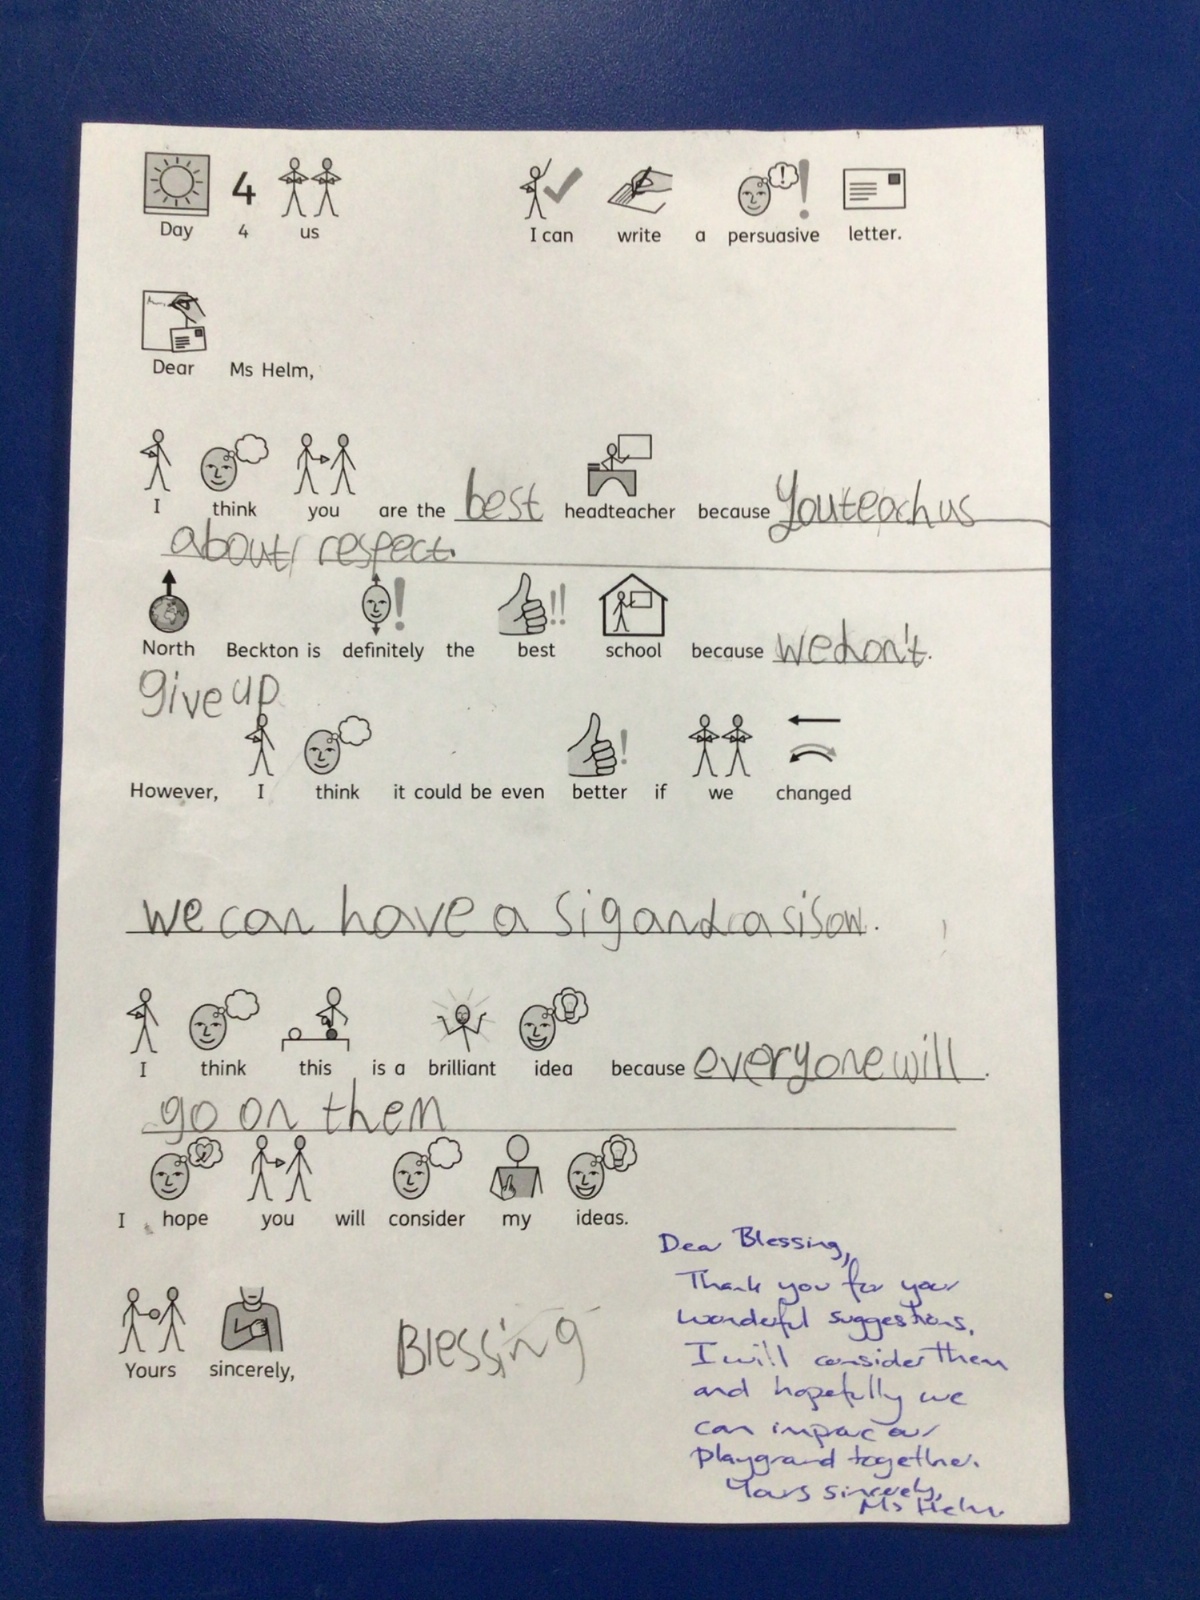 Day 4 us I can write a persuasive letter.
Dear Ms Helm,
I think you are the best headteacher because you teach us
about respect.
North Beckton is definitely the best school because we don't.
give up
However, I think it could be even better if we changed
we can have a sig and a sisow.
I think this is a brilliant idea because everyone will.
go on them
I hope you will consider my ideas.
Yours sincerely, Blessing
Dear Blessing,
Thank you for your
wonderful suggestions,
I will consider them
and hopefully we
can improve our
playground together.
Yours sincerely,
Ms Helm.